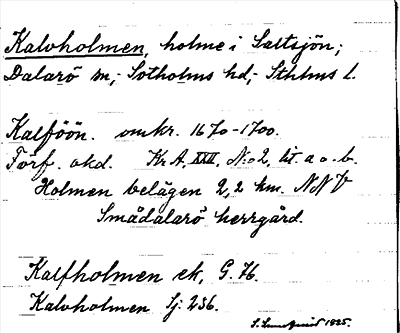 Kalvholmen, holme i Saltsjön;
Dalarö sn,- Sotholms hd,- Sthlms l.
Kalföön. omkr. 1670-1700.
Förf. okd. Kr. A. XXII, N:o 2, lit a o. b.
Holmen belägen 2,2 km. NNV
Smådalarö herrgård.
Kalfholmen ek, G. 76.
Kalvholmen Sj: 236.
1925.